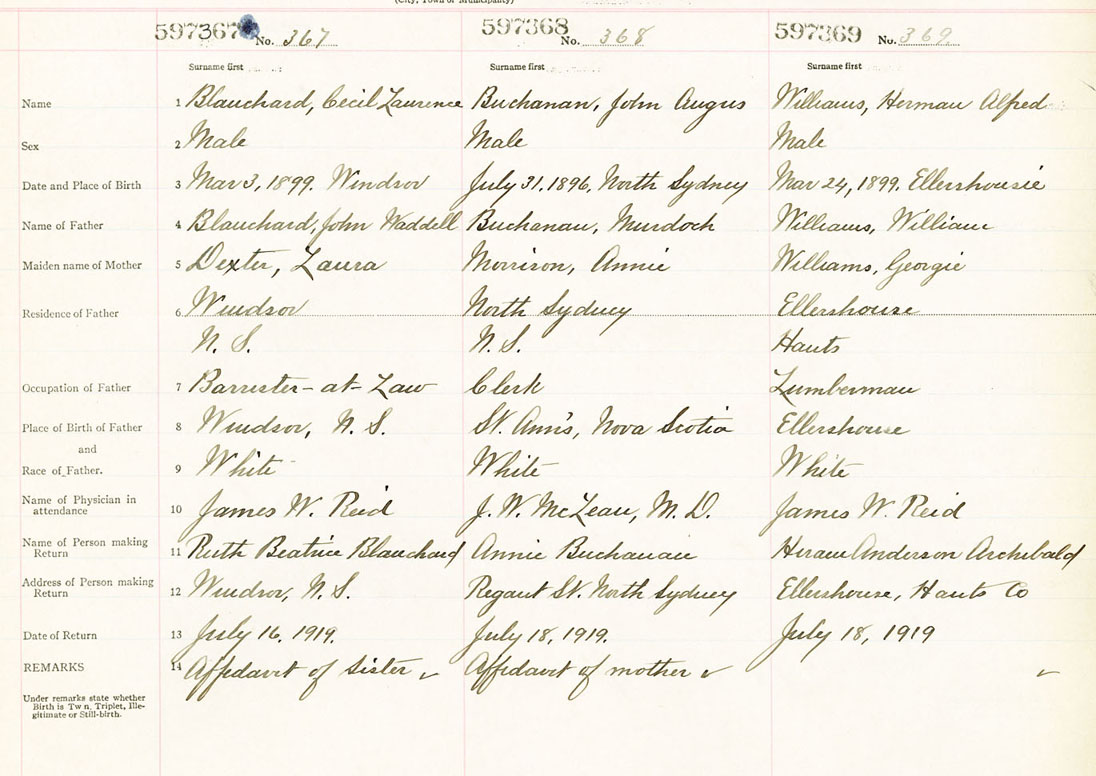 (City, Town or Municipality)
597367 No. 367 597368 No. 368 597369 No. 369
Surname first Surname first Surname first
Name 1 Blanchard, Cecil Laurence Buchanan, John Angus Williams, Herman Alfred
Sex 2 Male Male Male
Date and Place of Birth 3 Mar 3, 1899. Windsor July 31, 1896, North Sydney Mar 24, 1899, Ellershousie
Name of Father 4 Blanchard, John Waddell Buchanan, Murdoch Williams, William
Maiden name of Mother 5 Dexter, Laura Morrison, Annie Williams, Georgie
Residence of Father 6 Windsor North Sydney Ellershouse
N. S. N. S. Hants
Occupation of Father 7 Barrister-at-Law Clerk Lumberman
Place of Birth of Father 8 Windsor, N. S. St. Ann's, Nova Scotia Ellershouse
and
Race of Father. 9 White White White
Name of Physician in
attendance 10 James W. Reid J. W. McLean, M. D. James W. Reid
Name of Person making
Return 11 Ruth Beatrice Blanchard Annie Buchanan Hiram Anderson Archibald
Address of Person making
Return 12 Windsor, N. S. Regant St. North Sydney Ellershouse, Hants Co
Date of Return 13 July 16, 1919. July 18, 1919. July 18, 1919
REMARKS 14 Affidavit of sister ✓ Affidavit of mother ✓ ✓
Under remarks state whether
Birth is Tw n, Triplet, Ille-
gitimate or Still-birth.